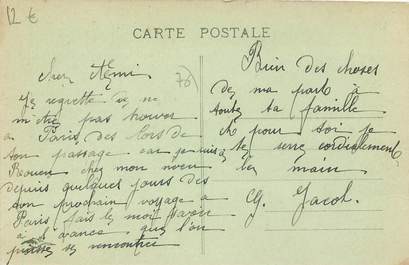 12 €
CARTE POSTALE
76)
Cher Rémi
Je regrette de ne
m'être pas trouver
a Paris des lors de
ton passage car je suis a
Rouen chez mon neveu
depuis quelques jours des
ton prochain voyage a
Paris fais le moi savoir
a l'avance que l'on
puisse se rencontrer
Bien des choses
de ma part à
toute ta famille
et pour toi je
te serre cordialement
la main
G. Jacob.